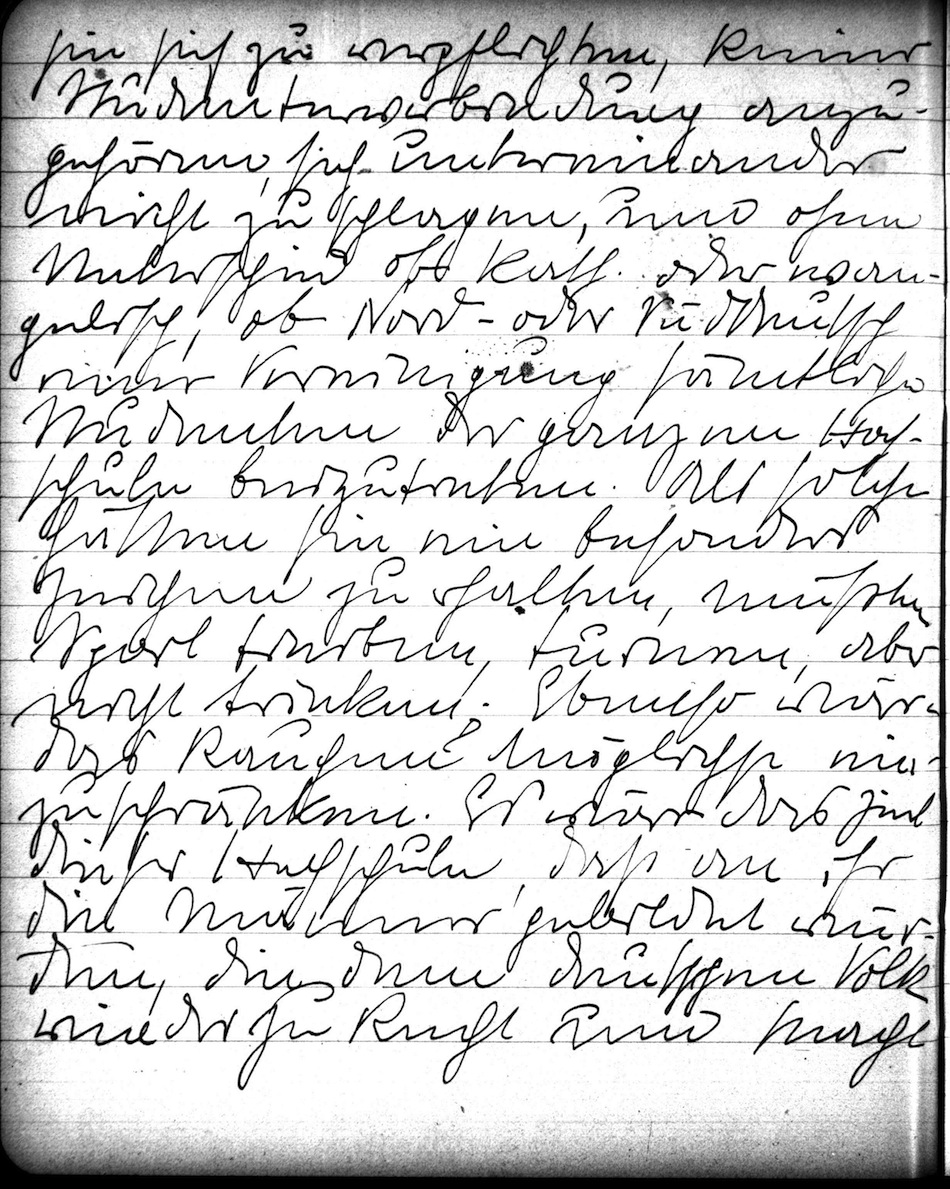 sie sich zu verpflichten, keiner
Studentenverbindung anzu-
gehören, sich untereinander
nicht zu schlagen, und ohne
Unterschied ob kath. oder evan-
gelisch, ob Nord- oder Süddeutsch
einer Vereinigung sämtlicher
Studenten der ganzen Hoch-
schule beizutreten. Als solche
hätten sie ein besonderes
Zeichen zu erhalten, müßten
Sport treiben, turnen, aber
nicht trinken. Ebenso wäre
das Rauchen möglichst ein-
zuschränken. Es wäre das Ziel
dieser Hochschule, daß an ihr
die Männer gebildet wür-
den, die dem deutschen Volk
wieder zu Recht und Macht